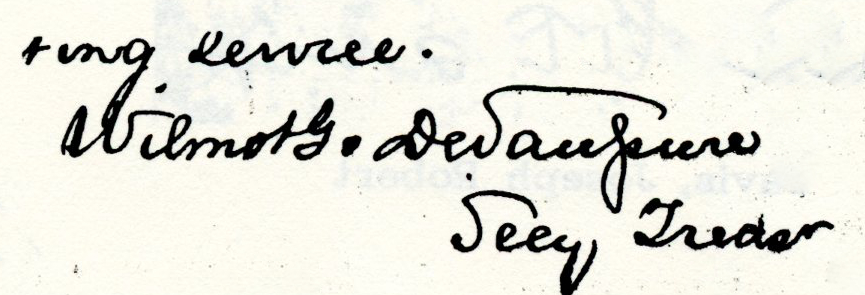 ting service.
Wilmot G. DeSaussure
Secy Treasr